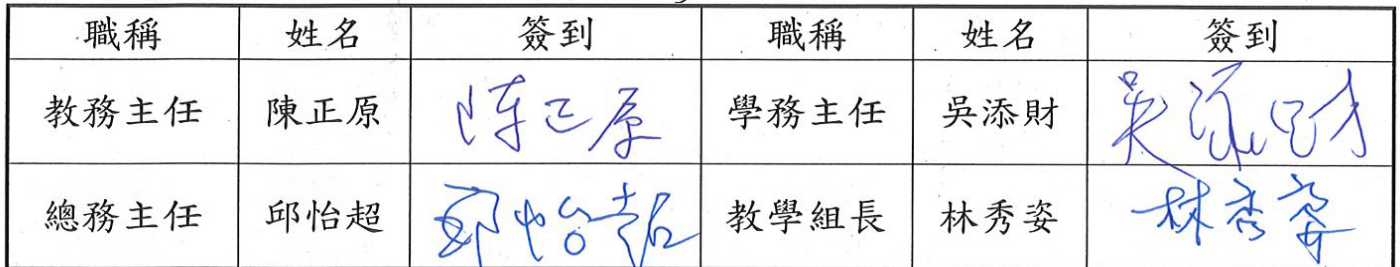 職稱 姓名 簽到 職稱 姓名 簽到
教務主任 陳正原 陳正原 學務主任 吳添財 吳添財
總務主任 邱怡超 邱怡超 教學組長 林秀姿 林秀姿